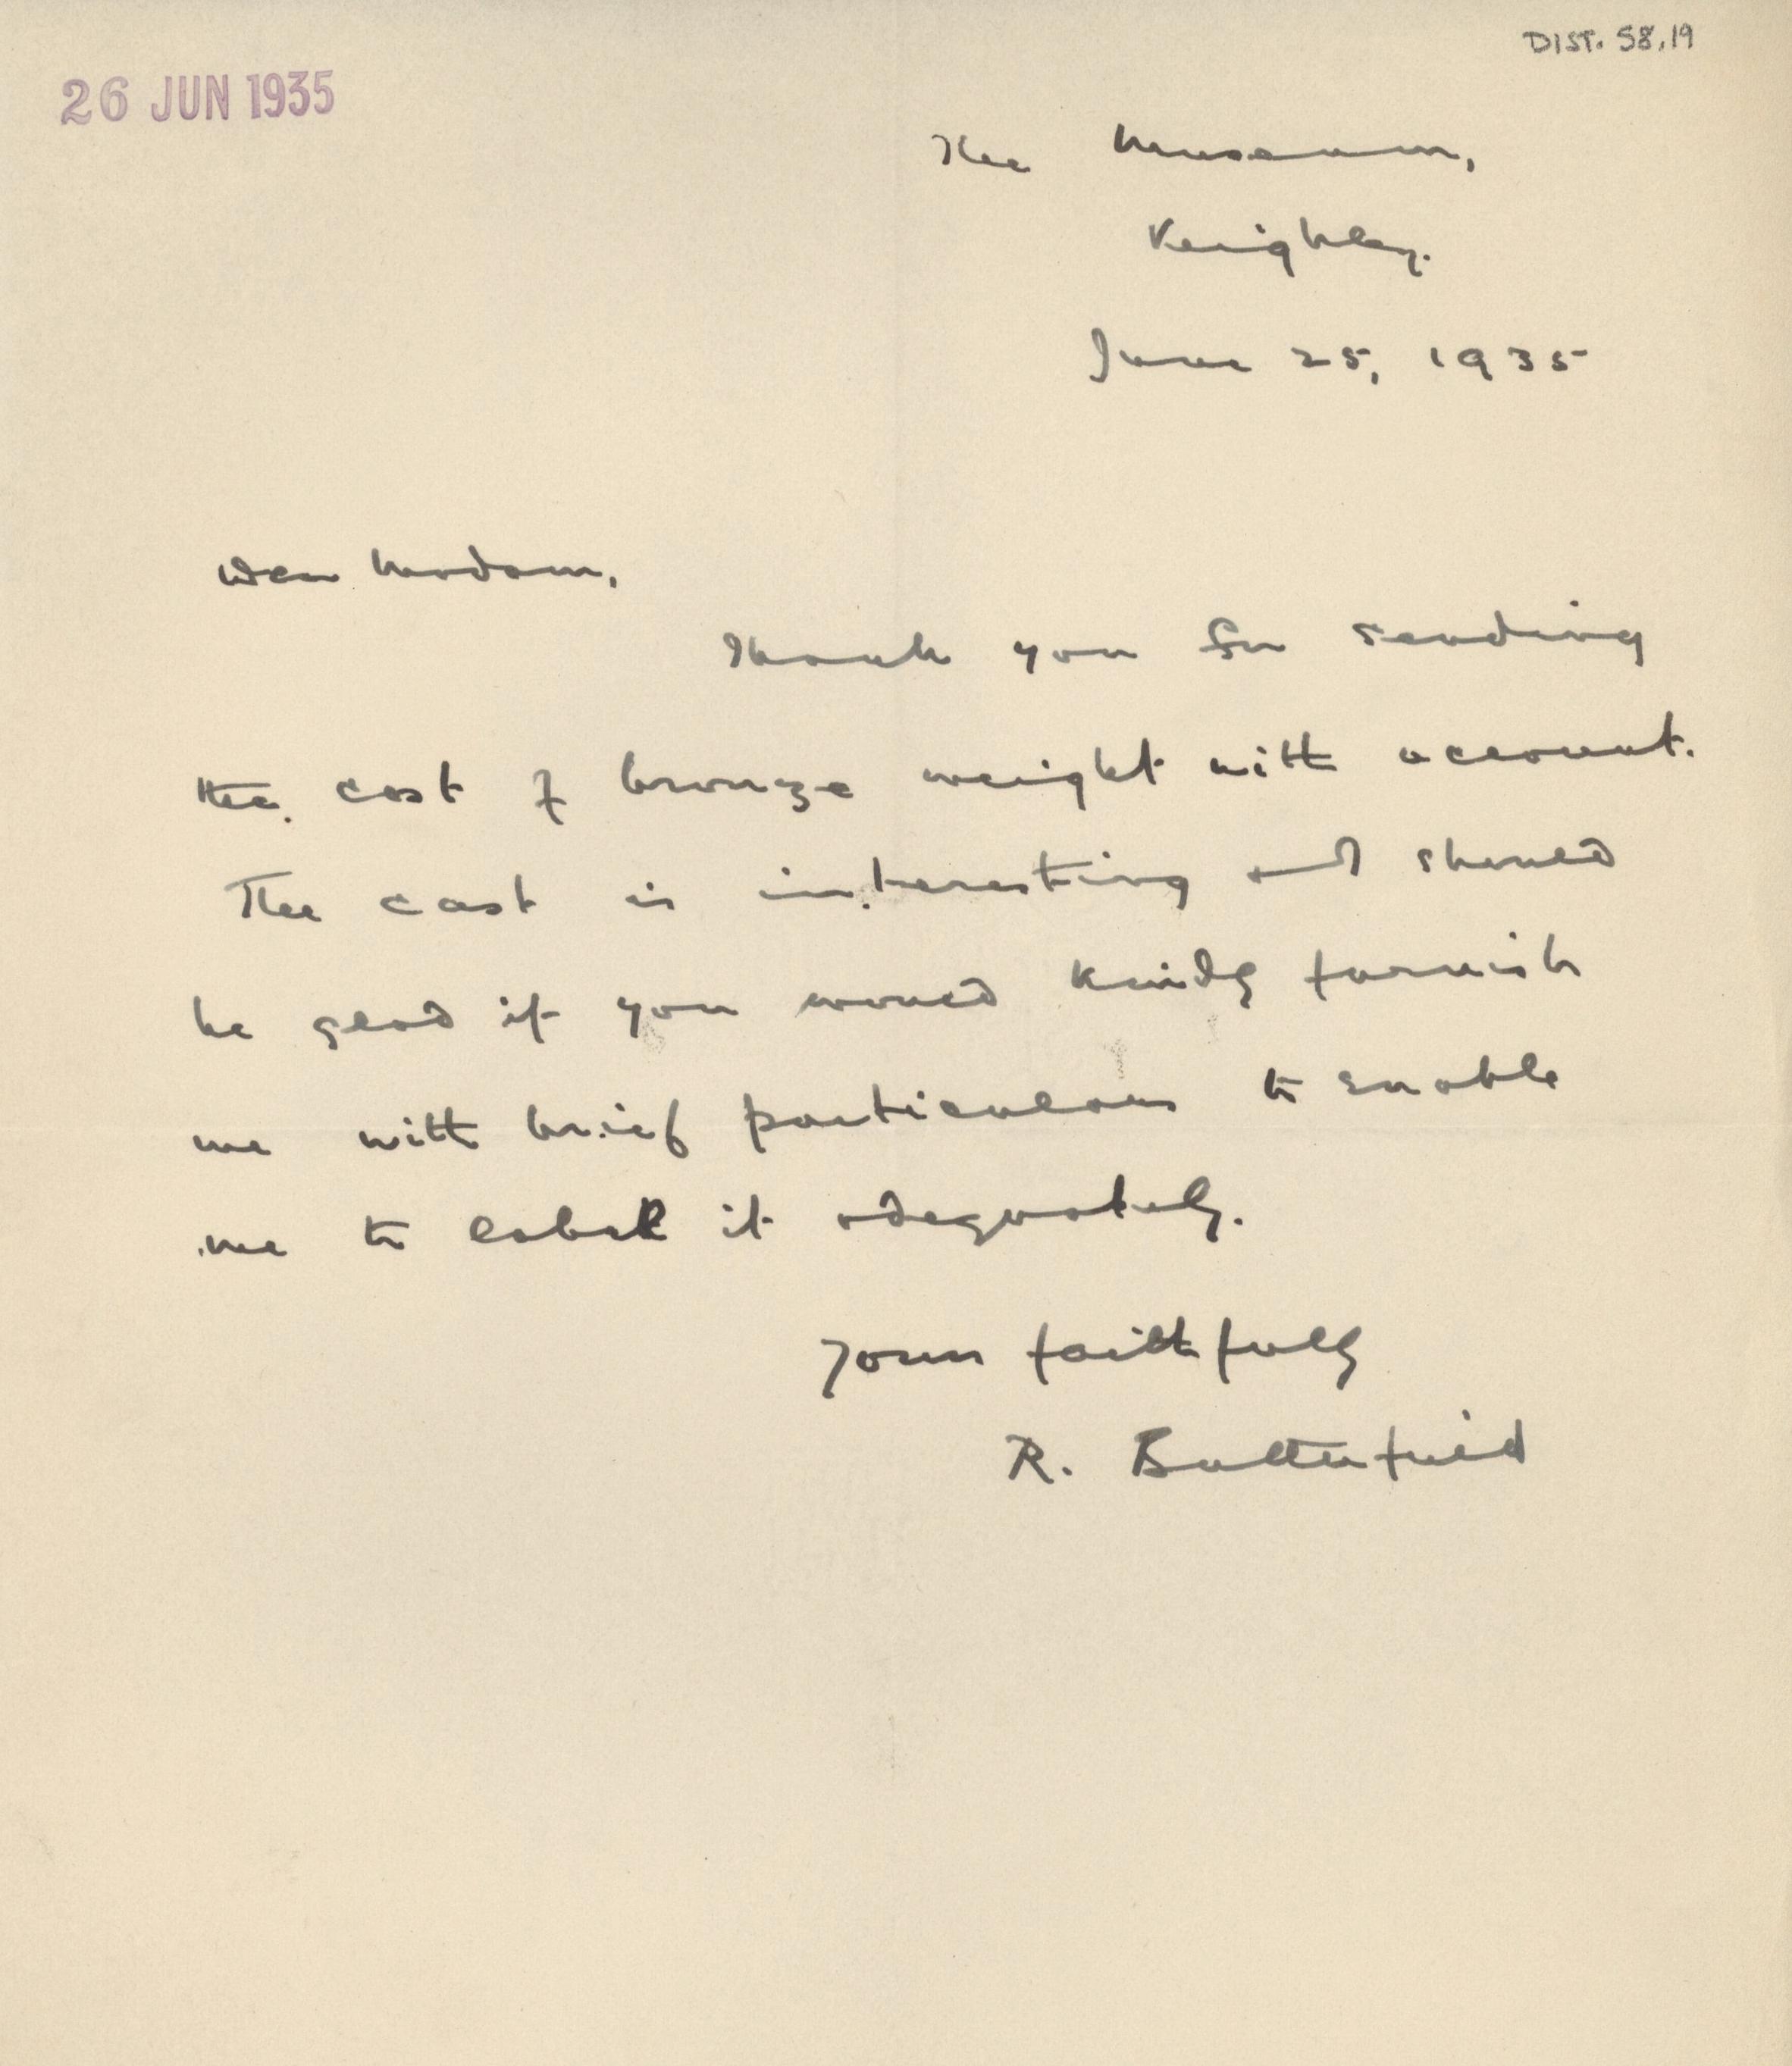 DIST. 58.19
26 JUN 1935
The Museum,
Keighley.
June 25, 1935
Dear Madam,
Thank you for sending
the cast of bronze weight with account.
The cast is interesting and should
be glad if you would kindly furnish
me with brief particulars to enable
me to label it adequately.
Yours faithfully
R. Butterfield